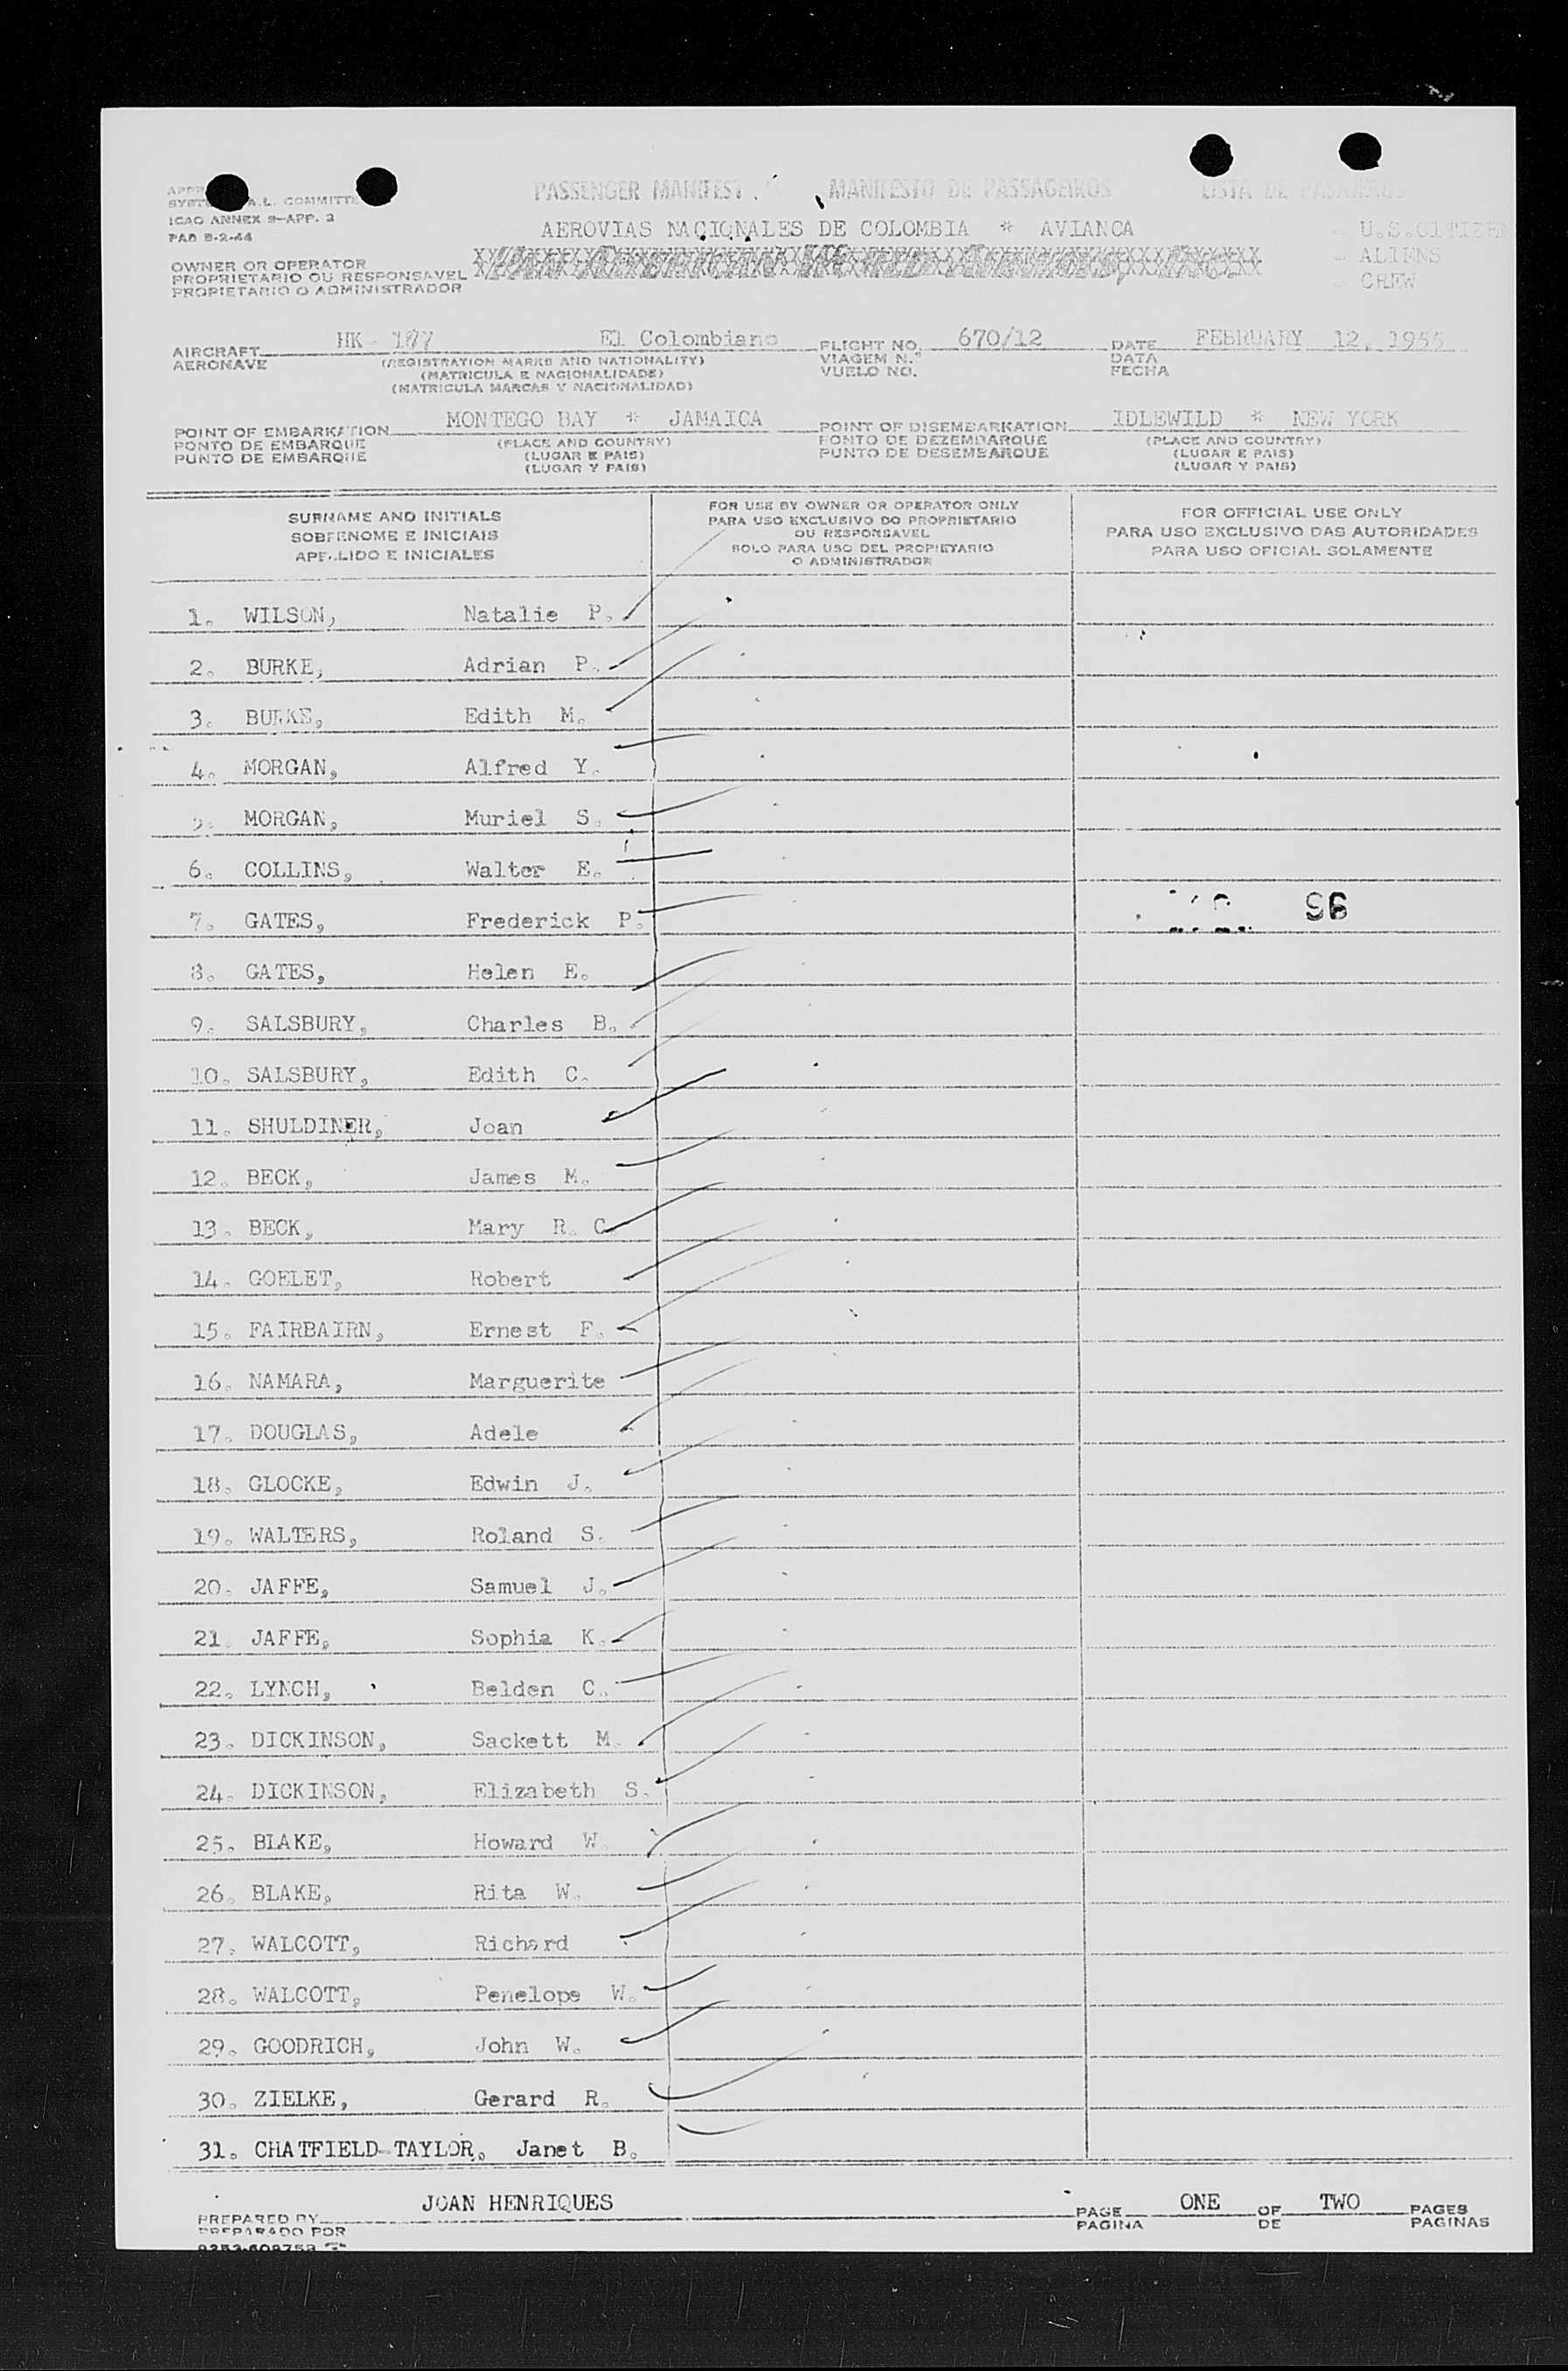 PASSENGER MANIFEST MANIFESTO DE PASSAGEIROS LISTA DE PASAJEROS
A.L. COMMITTE
ICAO ANNEX 9-APP. 3
PAD 5-2-44
AEROVIAS NACIONALES DE COLOMBIA * AVIANCA
- U.S.CITIZEN
- ALIENS
- CREW
OWNER OR OPERATOR
PROPRIETARIO OU RESPONSAVEL
PROPIETARIO O ADMINISTRADOR
AIRCRAFT HK- 177 El Colombiano FLIGHT NO. 670/12 DATE FEBRUARY 12, 1955
AERONAVE (REGISTRATION MARKS AND NATIONALITY) VIAGEM N.º DATA
(MATRICULA E NACIONALIDADE) VUELO NO. FECHA
(MATRICULA MARCAS Y NACIONALIDAD)
POINT OF EMBARKATION MONTEGO BAY * JAMAICA POINT OF DISEMBARKATION IDLEWILD * NEW YORK
PONTO DE EMBARQUE (PLACE AND COUNTRY) PONTO DE DEZEMBARQUE (PLACE AND COUNTRY)
PUNTO DE EMBARQUE (LUGAR E PAIS) PUNTO DE DESEMBARQUE (LUGAR E PAIS)
(LUGAR Y PAIS) (LUGAR Y PAIS)
SURNAME AND INITIALS
SOBRENOME E INICIAIS
APELLIDO E INICIALES
FOR USE BY OWNER OR OPERATOR ONLY
PARA USO EXCLUSIVO DO PROPRIETARIO
OU RESPONSAVEL
SOLO PARA USO DEL PROPIETARIO
O ADMINISTRADOR
FOR OFFICIAL USE ONLY
PARA USO EXCLUSIVO DAS AUTORIDADES
PARA USO OFICIAL SOLAMENTE
1. WILSON, Natalie P.
2. BURKE, Adrian P.
3. BURKE, Edith M.
4. MORGAN, Alfred Y.
5. MORGAN, Muriel S.
6. COLLINS, Walter E.
7. GATES, Frederick P. 96
8. GATES, Helen E.
9. SALSBURY, Charles B.
10. SALSBURY, Edith C.
11. SHULDINER, Joan
12. BECK, James M.
13. BECK, Mary R. C
14. GOELET, Robert
15. FAIRBAIRN, Ernest F.
16. NAMARA, Marguerite
17. DOUGLAS, Adele
18. GLOCKE, Edwin J.
19. WALTERS, Roland S.
20. JAFFE, Samuel J.
21. JAFFE, Sophia K.
22. LYNCH, Belden C.
23. DICKINSON, Sackett M.
24. DICKINSON, Elizabeth S.
25. BLAKE, Howard W
26. BLAKE, Rita W.
27. WALCOTT, Richard
28. WALCOTT, Penelope W.
29. GOODRICH, John W.
30. ZIELKE, Gerard R.
31. CHATFIELD-TAYLOR, Janet B.
PREPARED BY JOAN HENRIQUES PAGE ONE OF TWO PAGES
PREPARADO POR PAGINA DE PAGINAS